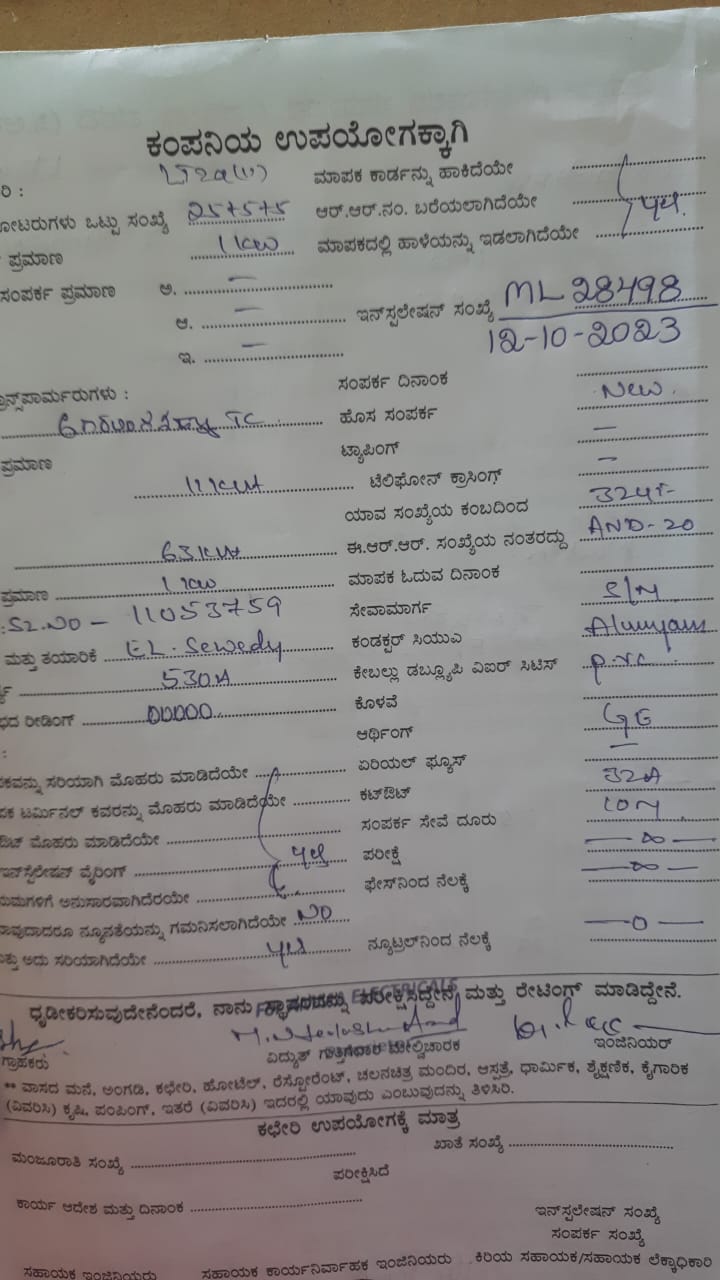 ಕಂಪನಿಯ ಉಪಯೋಗಕ್ಕಾಗಿ
ರಿ : LT2a(ii) ಮಾಪಕ ಕಾರ್ಡನ್ನು ಹಾಕಿದೆಯೇ
ೋಟರುಗಳು ಒಟ್ಟು ಸಂಖ್ಯೆ 25+5+5 ಆರ್.ಆರ್.ನಂ. ಬರೆಯಲಾಗಿದೆಯೇ
ಪ್ರಮಾಣ 1 KW ಮಾಪಕದಲ್ಲಿ ಹಾಳೆಯನ್ನು ಇಡಲಾಗಿದೆಯೇ
ಸಂಪರ್ಕ ಪ್ರಮಾಣ ಅ. –
ಆ. – ಇನ್‌ಸ್ಪಲೇಷನ್ ಸಂಖ್ಯೆ ML 28498
ಇ. – 12-10-2023
ರಾನ್ಸ್‌ಪಾರ್ಮರುಗಳು : ಸಂಪರ್ಕ ದಿನಾಂಕ
TC ಹೊಸ ಸಂಪರ್ಕ New.
ಪ್ರಮಾಣ ಟ್ಯಾಪಿಂಗ್ –
ಟೆಲಿಫೋನ್ ಕ್ರಾಸಿಂಗ್ –
ಯಾವ ಸಂಖ್ಯೆಯ ಕಂಬದಿಂದ
ಈ.ಆರ್.ಆರ್. ಸಂಖ್ಯೆಯ ನಂತರದ್ದು AND-20
ಪ್ರಮಾಣ 1 KW ಮಾಪಕ ಓದುವ ದಿನಾಂಕ
: SL.NO - 11053759 ಸೇವಾಮಾರ್ಗ
ಮತ್ತು ತಯಾರಿಕೆ EL. Sewedy ಕಂಡಕ್ಟರ್ ಸಿಯುಎ
ಕೇಬಲ್ಲು ಡಬ್ಲ್ಯೂಪಿ ವಿಐರ್ ಸಿಟಿಸ್ P.V.C
ರೀಡಿಂಗ್ 00000. ಕೊಳವೆ
ಆರ್ಥಿಂಗ್ GE
ಏರಿಯಲ್ ಫ್ಯೂಸ್ –
ಪಕವನ್ನು ಸರಿಯಾಗಿ ಮೊಹರು ಮಾಡಿದೆಯೇ ಕಟ್‌ಔಟ್ 32A
ಪಕ ಟರ್ಮಿನಲ್ ಕವರನ್ನು ಮೊಹರು ಮಾಡಿದೆಯೇ ಸಂಪರ್ಕ ಸೇವೆ ದೂರು 10M
ಮೊಹರು ಮಾಡಿದೆಯೇ ಪರೀಕ್ಷೆ — ∞ —
ಇನ್‌ಸ್ಪೆಲೇಷನ್ ವೈರಿಂಗ್ ಫೇಸ್‌ನಿಂದ ನೆಲಕ್ಕೆ — ∞ —
ಯಮಗಳಿಗೆ ಅನುಸಾರವಾಗಿದೆರಯೇ
ವುದಾದರೂ ನ್ಯೂನತೆಯನ್ನು ಗಮನಿಸಲಾಗಿದೆಯೇ NO
ತ್ತು ಅದು ಸರಿಯಾಗಿದೆಯೇ ನ್ಯೂಟ್ರಲ್‌ನಿಂದ ನೆಲಕ್ಕೆ — 0 —
ಧೃಡೀಕರಿಸುವುದೇನೆಂದರೆ, ನಾನು ಸ್ಥಾಪನೆಯನ್ನು ಪರೀಕ್ಷಿಸಿದ್ದೇನೆ ಮತ್ತು ರೇಟಿಂಗ್ ಮಾಡಿದ್ದೇನೆ.
ಗ್ರಾಹಕರು ವಿದ್ಯುತ್ ಗುತ್ತಿಗೆದಾರ ಮೇಲ್ವಿಚಾರಕ ಇಂಜಿನಿಯರ್
** ವಾಸದ ಮನೆ, ಅಂಗಡಿ, ಕಛೇರಿ, ಹೋಟೆಲ್, ರೆಸ್ಟೋರೆಂಟ್, ಚಲನಚಿತ್ರ ಮಂದಿರ, ಆಸ್ಪತ್ರೆ, ಧಾರ್ಮಿಕ, ಶೈಕ್ಷಣಿಕ, ಕೈಗಾರಿಕ
(ವಿವರಿಸಿ) ಕೃಷಿ, ಪಂಪಿಂಗ್, ಇತರೆ (ವಿವರಿಸಿ) ಇದರಲ್ಲಿ ಯಾವುದು ಎಂಬುವುದನ್ನು ತಿಳಿಸಿರಿ.
ಕಛೇರಿ ಉಪಯೋಗಕ್ಕೆ ಮಾತ್ರ
ಮಂಜೂರಾತಿ ಸಂಖ್ಯೆ ಖಾತೆ ಸಂಖ್ಯೆ
ಪರೀಕ್ಷಿಸಿದೆ
ಕಾರ್ಯ ಆದೇಶ ಮತ್ತು ದಿನಾಂಕ
ಇನ್‌ಸ್ಪಲೇಷನ್ ಸಂಖ್ಯೆ
ಸಂಪರ್ಕ ಸಂಖ್ಯೆ
ಸಹಾಯಕ ಇಂಜಿನಿಯರು ಸಹಾಯಕ ಕಾರ್ಯನಿರ್ವಾಹಕ ಇಂಜಿನಿಯರು ಕಿರಿಯ ಸಹಾಯಕ/ಸಹಾಯಕ ಲೆಕ್ಕಾಧಿಕಾರಿ